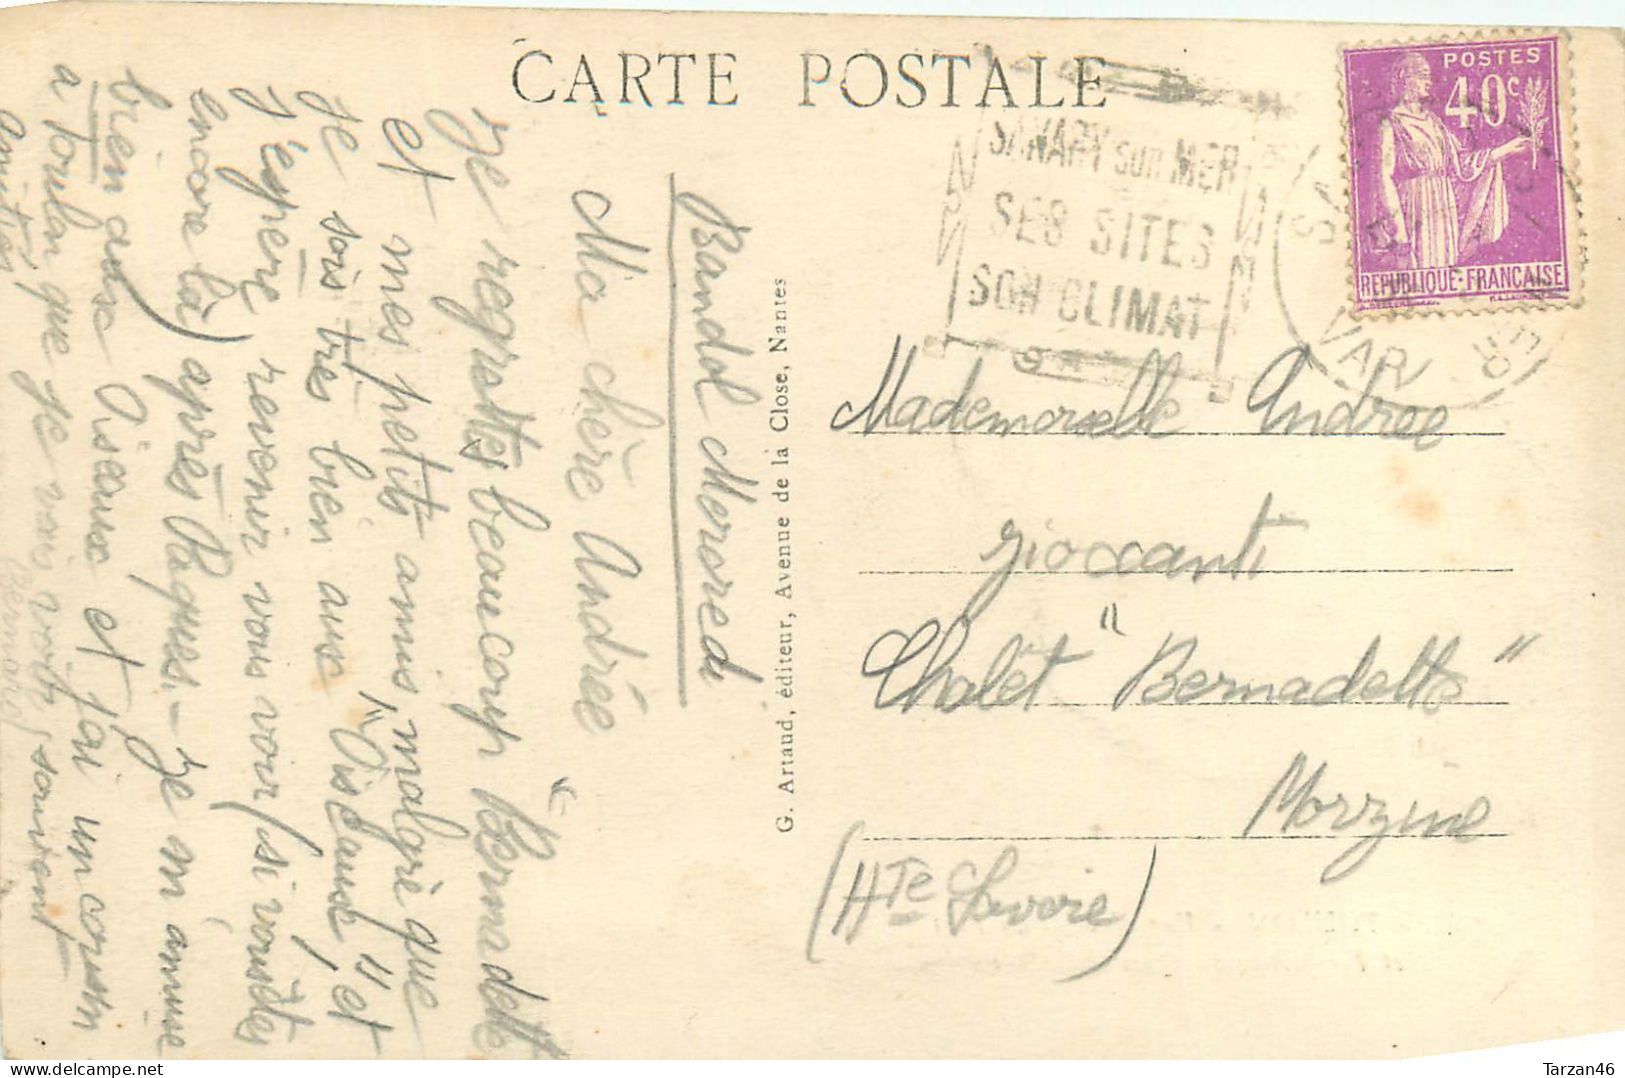 CARTE POSTALE
POSTES
40c
REPUBLIQUE·FRANÇAISE
SANARY sur MER
SES SITES
SON CLIMAT
VAR
Bandol Mercredi
Ma chère Andrée
Je regrettes beaucoup "Bernadette"
et mes petits amis, malgré que
Je sois très bien aux "Oiseaux" et
J'espère revenir vous voir (si vous êtes
encore là) après Pâques. - Je m'amuse
bien aux Oiseaux et j'ai un cousin
a Toulon que je vais voir souvent
Amitiés
Bernard
G. Artaud, éditeur, Avenue de la Close, Nantes
Mademoiselle Andree
Gioxanti
Chalet "Bernadette"
Morzine
(Hte Savoie)
Tarzan46